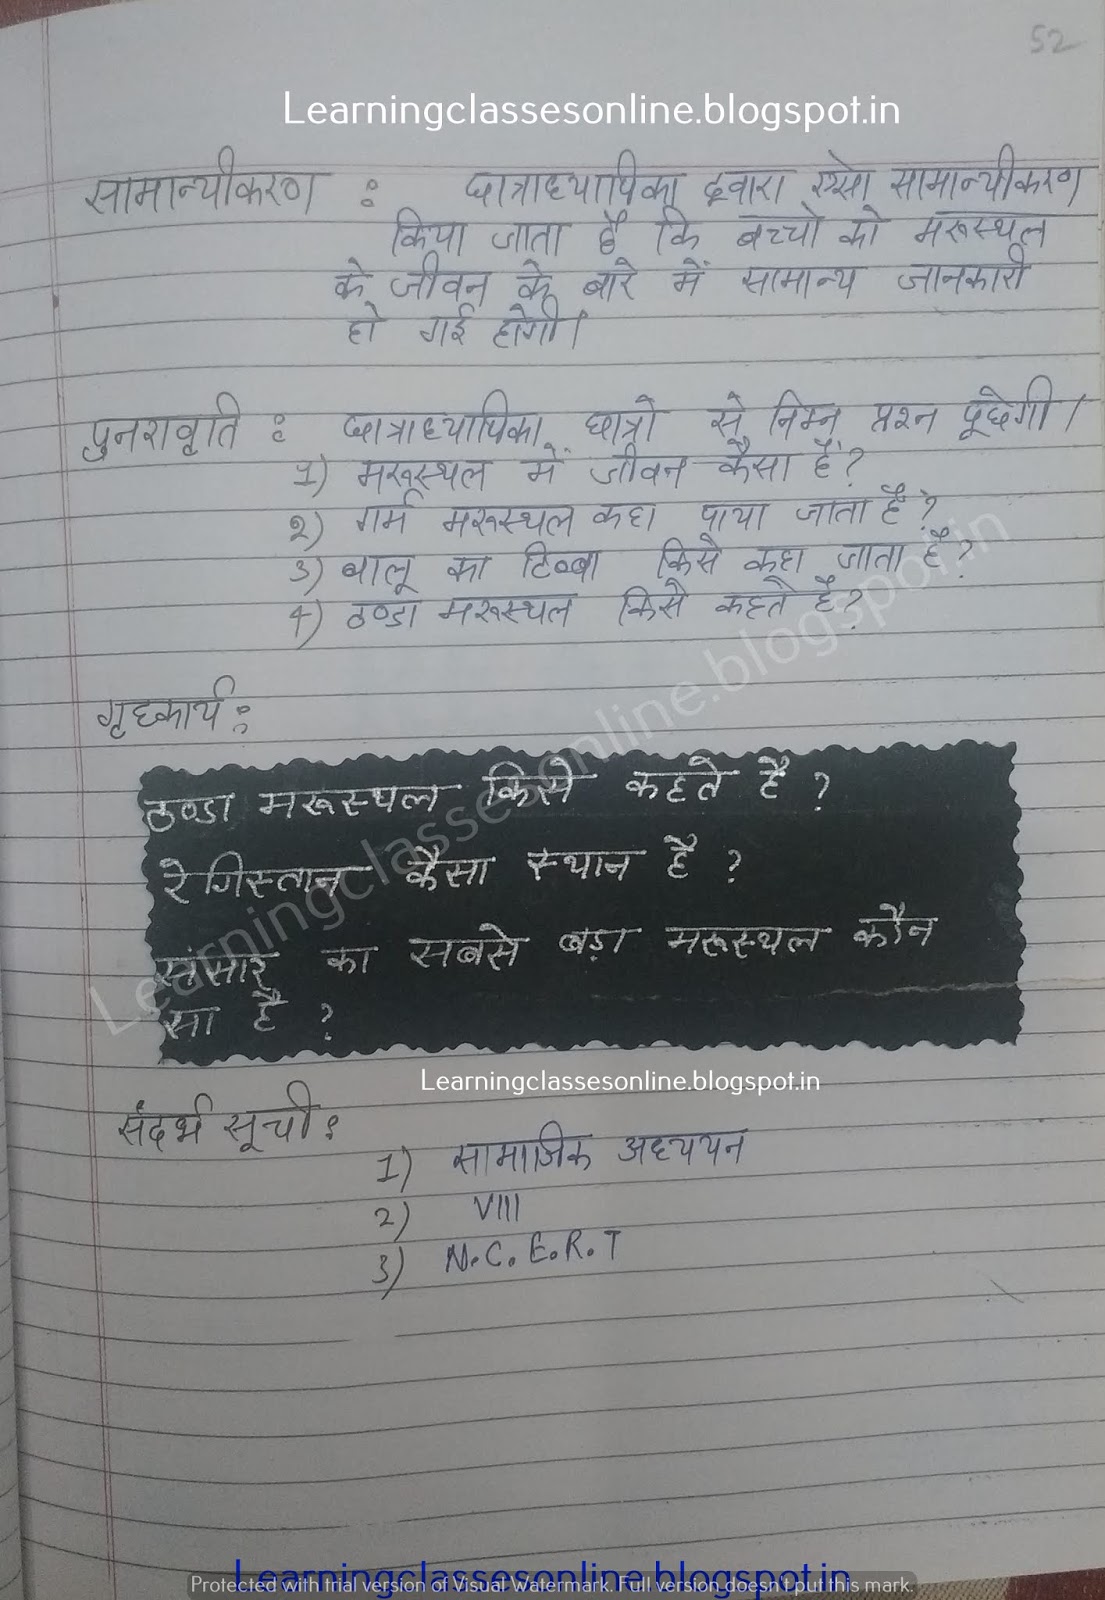 52
Learningclassesonline.blogspot.in
सामान्यीकरण : छात्राध्यापिका द्वारा ऐसा सामान्यीकरण
किया जाता है कि बच्चो को मरूस्थल
के जीवन के बारे में सामान्य जानकारी
हो गई होगी।
पुनरावृति : छात्राध्यापिका छात्रो से निम्न प्रश्न पूछेगी।
1) मरूस्थल में जीवन कैसा हैं?
2) गर्म मरूस्थल कहा पाया जाता है?
3) बालू का टिब्बा किसे कहा जाता है?
4) ठण्डा मरूस्थल किसे कहते है?
Learningclassesonline.blogspot.in
गृहकार्य :
ठण्डा मरूस्थल किसे कहते है ?
रेगिस्तान कैसा स्थान है ?
संसार का सबसे बड़ा मरूस्थल कौन
सा है ?
Learningclassesonline.blogspot.in
संदर्भ सूची :
1) सामाजिक अध्ययन
2) VIII
3) N.C.E.R.T
Learningclassesonline.blogspot.in
Protected with trial version of Visual Watermark. Full version doesn't put this mark.